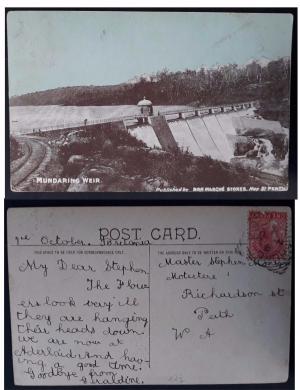 MUNDARING WEIR.
Published by BON MARCHÉ STORES, Hay St PERTH
POST CARD.
THIS SPACE TO BE USED FOR CORRESPONDENCE ONLY.
THE ADDRESS ONLY TO BE WRITTEN ON THIS SIDE
October.
My Dear Stephen
The Flow
ers look very ill
they are hanging
their heads down
we are now at
Adelaide And hav
ing a good time.
Goodbye from
Geraldine.
Master Stephen
Richardson St
Peth
W A